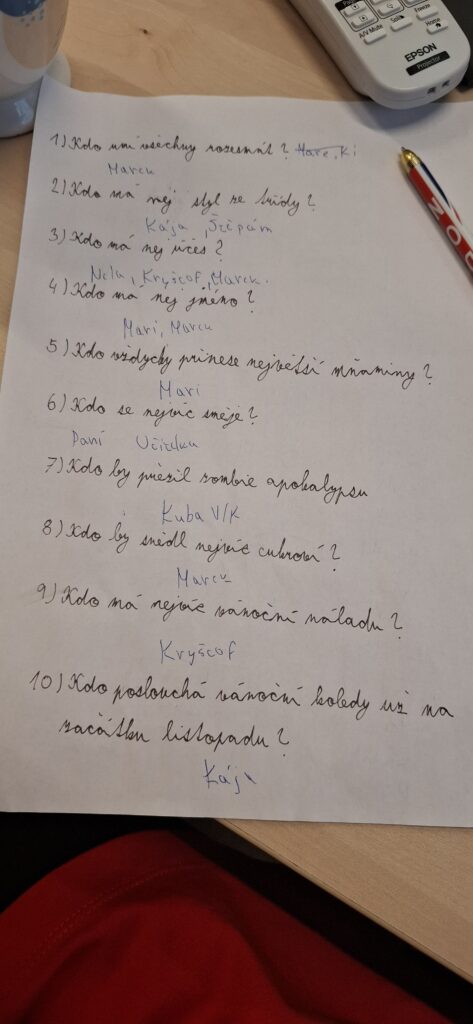 A/V Mute
Freeze
Home
EPSON
Projector
1) Kdo umí všechny rozesmát? Mare, Ki
Marcu
2) Kdo má nej styl ze třídy?
Kája, Štěpám
3) Kdo má nej účes?
Nela, Kryšcof, Marcu.
4) Kdo má nej jméno?
Mari, Marcu
5) Kdo vždycky přinese největší mňaminy?
Mari
6) Kdo se nejvíc směje?
Paní Učitelku
7) Kdo by přežil zombie apokalypsu
Kuba V/K
8) Kdo by snědl nejvíc cukroví?
Marcu
9) Kdo má nejvíc vánoční náladu?
Kryšcof
10) Kdo poslouchá vánoční koledy už na
začátku listopadu?
Kája